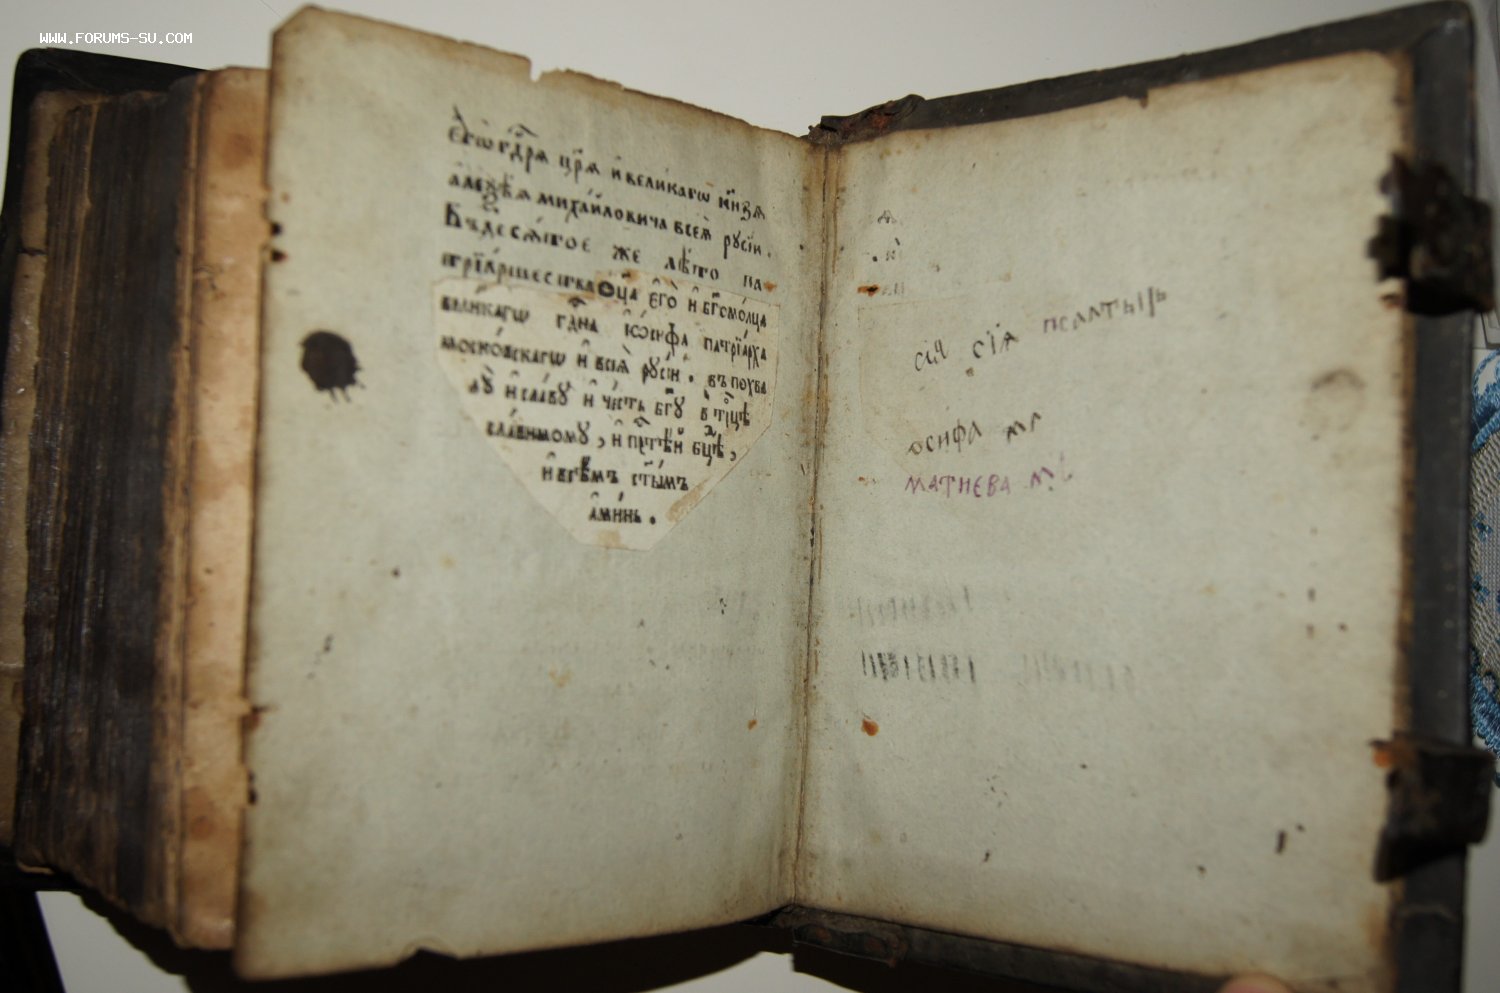 WWW.FORUMS-SU.COM
его̀ гд҇рѧ цр҃ѧ и҆ вели́кагѡ кн҃зѧ
алеѯѣ́ѧ миха́йловича всеѧ̀ рꙋсі́и.
Въ десѧ́тое же лѣ́то па
трїа́ршества ѻ҆ц҃а є҆гѡ̀ и҆ бг҃омо́лца
вели́кагѡ гдⷭ҇на і҆ѡ́сифа патрїа́рха
моско́вскагѡ и҆ всеѧ̀ рꙋсі́и. въ похва
лꙋ̀ и҆ сла́вꙋ и҆ че́сть бг҃ꙋ в тро́цѣ
сла́вимомꙋ, и҆ прⷱ҇тѣй бц҃ѣ,
и҆ всѣ́мъ ст҃ы́мъ
а҆ми́нь.
сиѧ сїѧ псалтырь
осифа
матиева